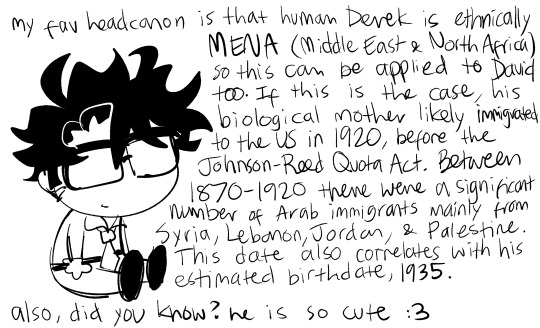 my fav headcanon is that human Derek is ethnically
MENA (Middle East & North Africa)
so this can be applied to David
too. If this is the case, his
biological mother likely immigrated
to the US in 1920, before the
Johnson-Reed Quota Act. Between
1870-1920 there were a significant
number of Arab immigrants mainly from
Syria, Lebanon, Jordan, & Palestine.
This date also correlates with his
estimated birthdate, 1935.
also, did you know? he is so cute :3